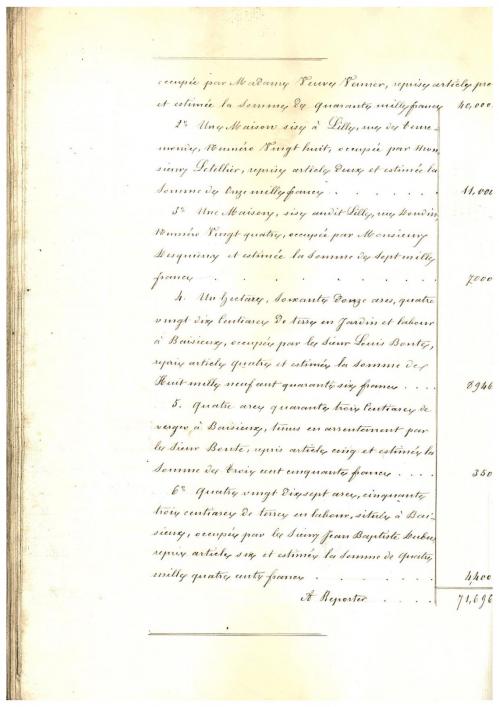 occupée par Madame Veuve Vernier, reprise article pre
et estimée la somme de quarante mille francs 40,000.
2º Une Maison sise à Lille, rue de tenre-
monde, Numéro Vingt huit, occupée par Mon-
sieur Letellier, reprise article Deux et estimée la
Somme de Onze mille francs . . . . . . 11,000
3º Une Maison, sise audit Lille, rue
Numéro Vingt quatre, occupée par Monsieur
et estimée la Somme de Sept mille
francs . . . . . . . 7,000
4. Un Hectare, Soixante Douze ares, quatre
vingt dix Centiares de terre en Jardin et labour
à Baisieux, occupée par le Sieur Louis Bonte,
repris article quatre et estimée la somme de
Huit mille neuf cent quarante six francs . . . . 8,946
5. Quatre ares quarante trois Centiares de
verger à Baisieux, tenus en arrentement par
le Sieur Bonte, repris article cinq et estimés la
Somme de trois cent cinquante francs . . . . 350
6º Quatre vingt Dix sept ares, cinquante
trois centiares de terre en labour, située à Bai-
sieux, occupée par le Sieur Jean Baptiste
reprise article six et estimée la somme de quatre
mille quatre cents francs . . . . . . . 4,400
A Reporter . . . . 71,696